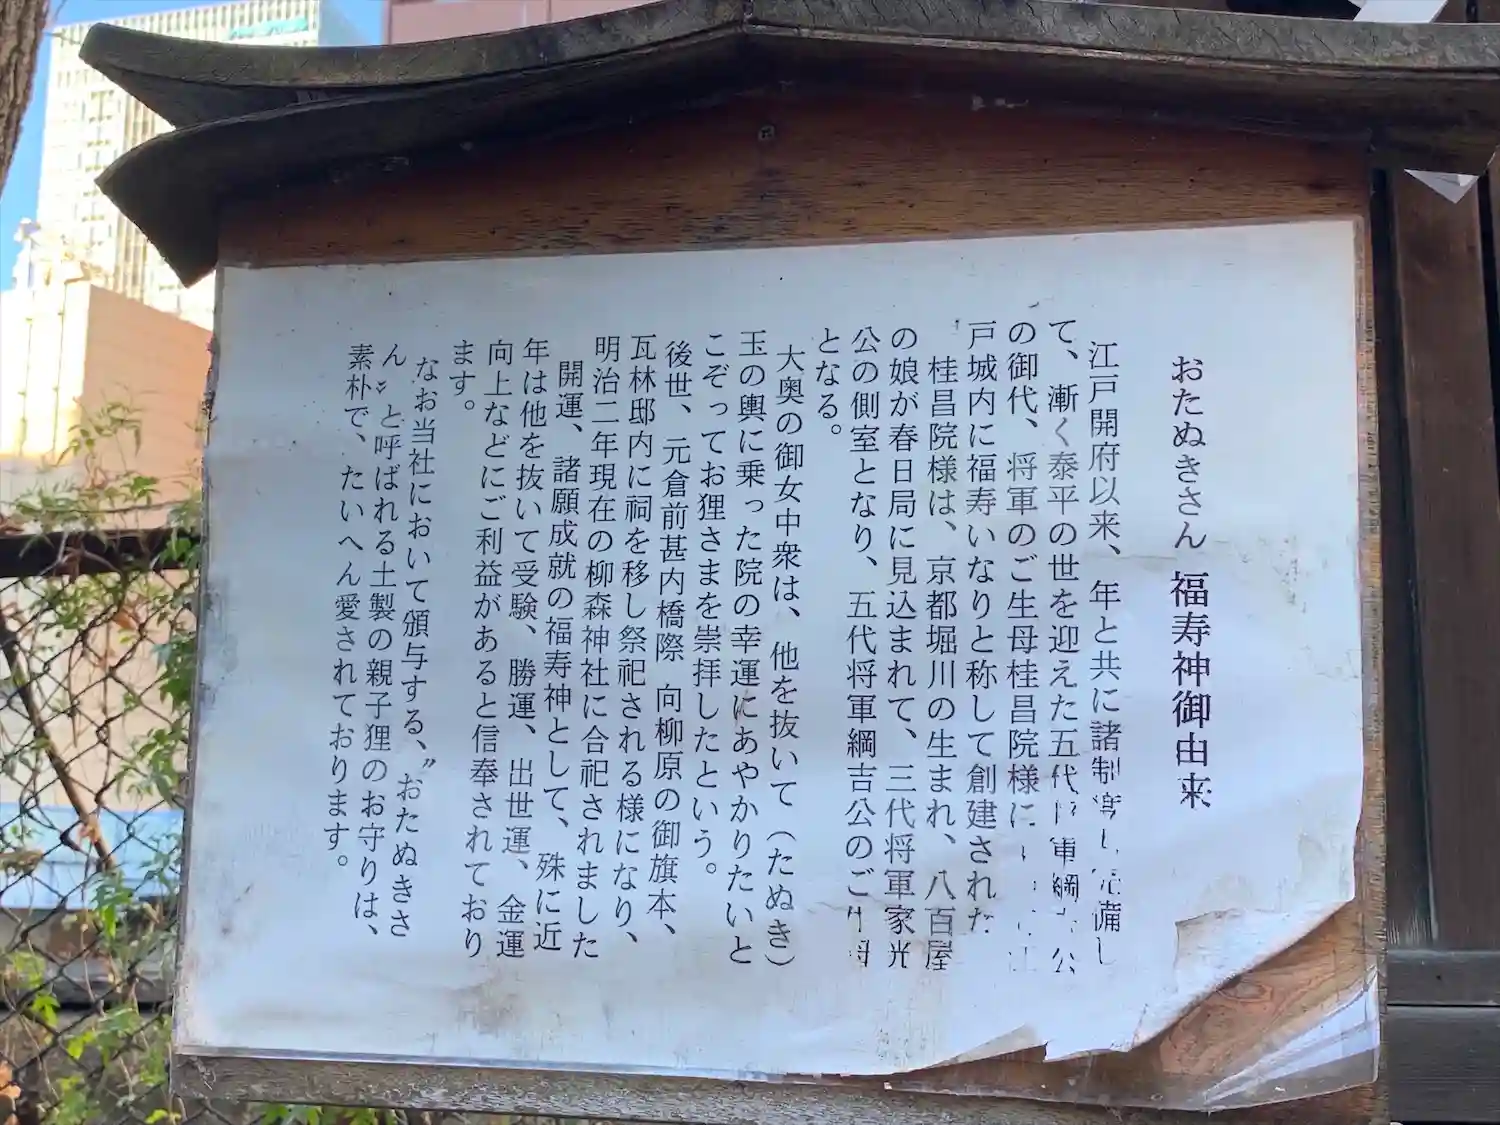 おたぬきさん 福寿神御由来
江戸開府以来、年と共に諸制 し 備し
て、漸く泰平の世を迎えた五代 軍綱 公
の御代、将軍のご生母桂昌院様に 江
戸城内に福寿いなりと称して創建された
桂昌院様は、京都堀川の生まれ、八百屋
の娘が春日局に見込まれて、三代将軍家光
公の側室となり、五代将軍綱吉公のご
となる。
大奥の御女中衆は、他を抜いて（たぬき）
玉の輿に乗った院の幸運にあやかりたいと
こぞってお狸さまを崇拝したという。
後世、元倉前甚内橋際 向柳原の御旗本、
瓦林邸内に祠を移し祭祀される様になり、
明治二年現在の柳森神社に合祀されました
開運、諸願成就の福寿神として、殊に近
年は他を抜いて受験、勝運、出世運、金運
向上などにご利益があると信奉されており
ます。
なお当社において頒与する、〝おたぬきさ
ん〟と呼ばれる土製の親子狸のお守りは、
素朴で、たいへん愛されております。